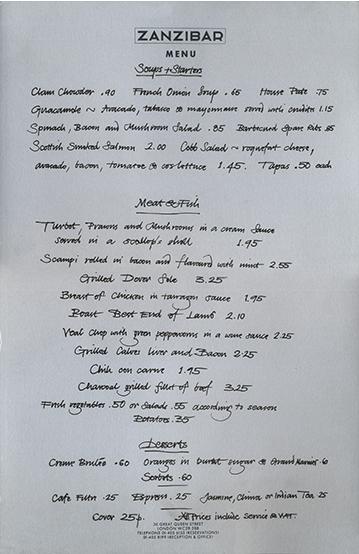 ZANZIBAR
MENU
Soups + Starters
Clam Chowder .90 French Onion Soup .65 House Pate .75
Guacamole ~ Avocado, tabasco & mayonnaise served with crudites 1.15
Spinach, Bacon and Mushroom Salad .85 Barbecued Spare Ribs .85
Scottish Smoked Salmon 2.00 Cobb Salad ~ roquefort cheese,
avocado, bacon, tomatoe & cos lettuce 1.45. Tapas .50 each
Meat & Fish
Turbot, Prawns and Mushrooms in a cream sauce
served in a scallop's shell 1.95
Scampi rolled in bacon and flavoured with mint 2.55
Grilled Dover Sole 3.25
Breast of Chicken in tarragon sauce 1.95
Roast Best End of Lamb 2.10
Veal Chop with green peppercorns in a wine sauce 2.25
Grilled Calves liver and Bacon 2.25
Chili con carne 1.95
Charcoal grilled fillet of beef 3.25
Fresh vegetables .50 or Salads .55 according to season
Potatoes .35
Desserts
Creme Brulée .60 Oranges in burnt sugar & Grand Marnier .60
Sorbets .60
Cafe Filtre .25 Espresso .25 Jasmine, China or Indian Tea .25
Cover 25p. Prices include service & VAT.
36 GREAT QUEEN STREET
LONDON WC2B 5BB
TELEPHONE 01-405 6153 (RESERVATIONS)
01-405 8199 (RECEPTION & OFFICE)